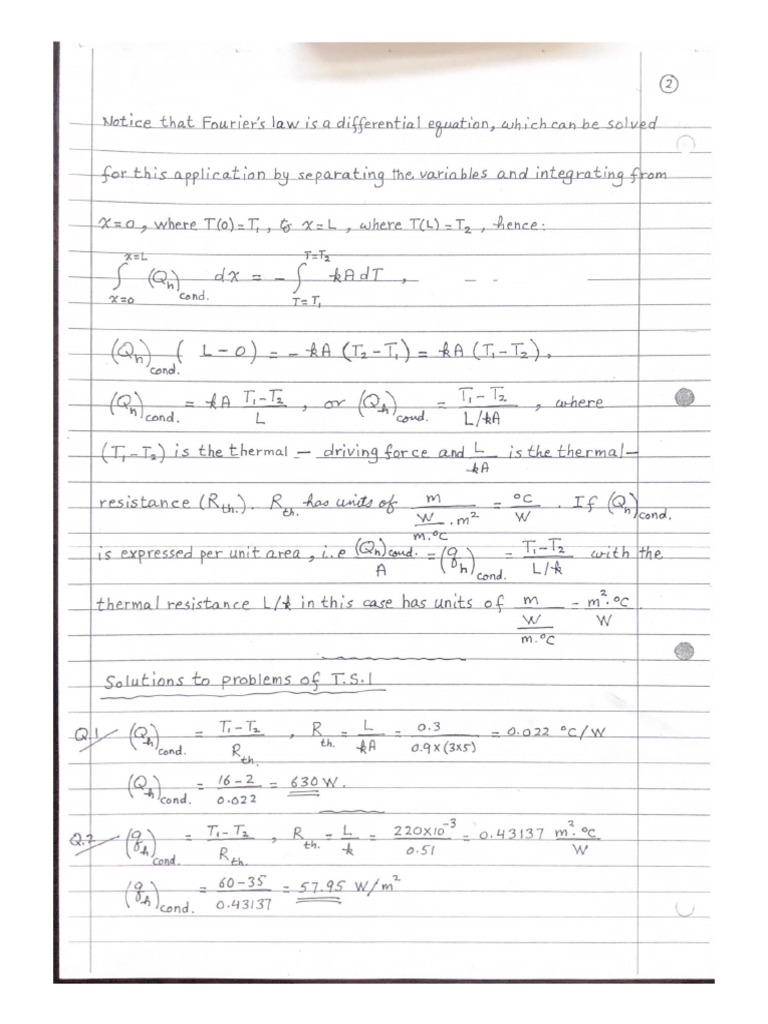 ②
Notice that Fourier's law is a differential equation, which can be solved
for this application by separating the variables and integrating from
x=0, where T(0)=T₁, to x=L, where T(L)=T₂, hence:
∫_{x=0}^{x=L} (Q_h)_{cond.} dx = -∫_{T=T₁}^{T=T₂} kAdT,
(Q_h)_{cond.} (L-0) = -kA (T₂-T₁) = kA (T₁-T₂),
(Q_h)_{cond.} = kA \frac{T₁-T₂}{L}, or (Q_h)_{cond.} = \frac{T₁-T₂}{L/kA}, where
(T₁-T₂) is the thermal - driving force and \frac{L}{kA} is the thermal-
resistance (R_{th.}). R_{th.} has units of \frac{m}{\frac{W}{m.°C}.m²} = \frac{°C}{W}. If (Q_h)_{cond.}
is expressed per unit area, i.e \frac{(Q_h)_{cond.}}{A} = (q_h)_{cond.} = \frac{T₁-T₂}{L/k} with the
thermal resistance L/k in this case has units of \frac{m}{\frac{W}{m.°C}} = \frac{m².°C}{W}.
Solutions to problems of T.S.1
Q.1 (Q_h)_{cond.} = \frac{T₁-T₂}{R_{th.}}, R_{th.} = \frac{L}{kA} = \frac{0.3}{0.9×(3×5)} = 0.022 °C/W
(Q_h)_{cond.} = \frac{16-2}{0.022} = 630 W.
Q.2 (q_h)_{cond.} = \frac{T₁-T₂}{R_{th.}}, R_{th.} = \frac{L}{k} = \frac{220×10^{-3}}{0.51} = 0.43137 \frac{m².°C}{W}
(q_h)_{cond.} = \frac{60-35}{0.43137} = 57.95 W/m²